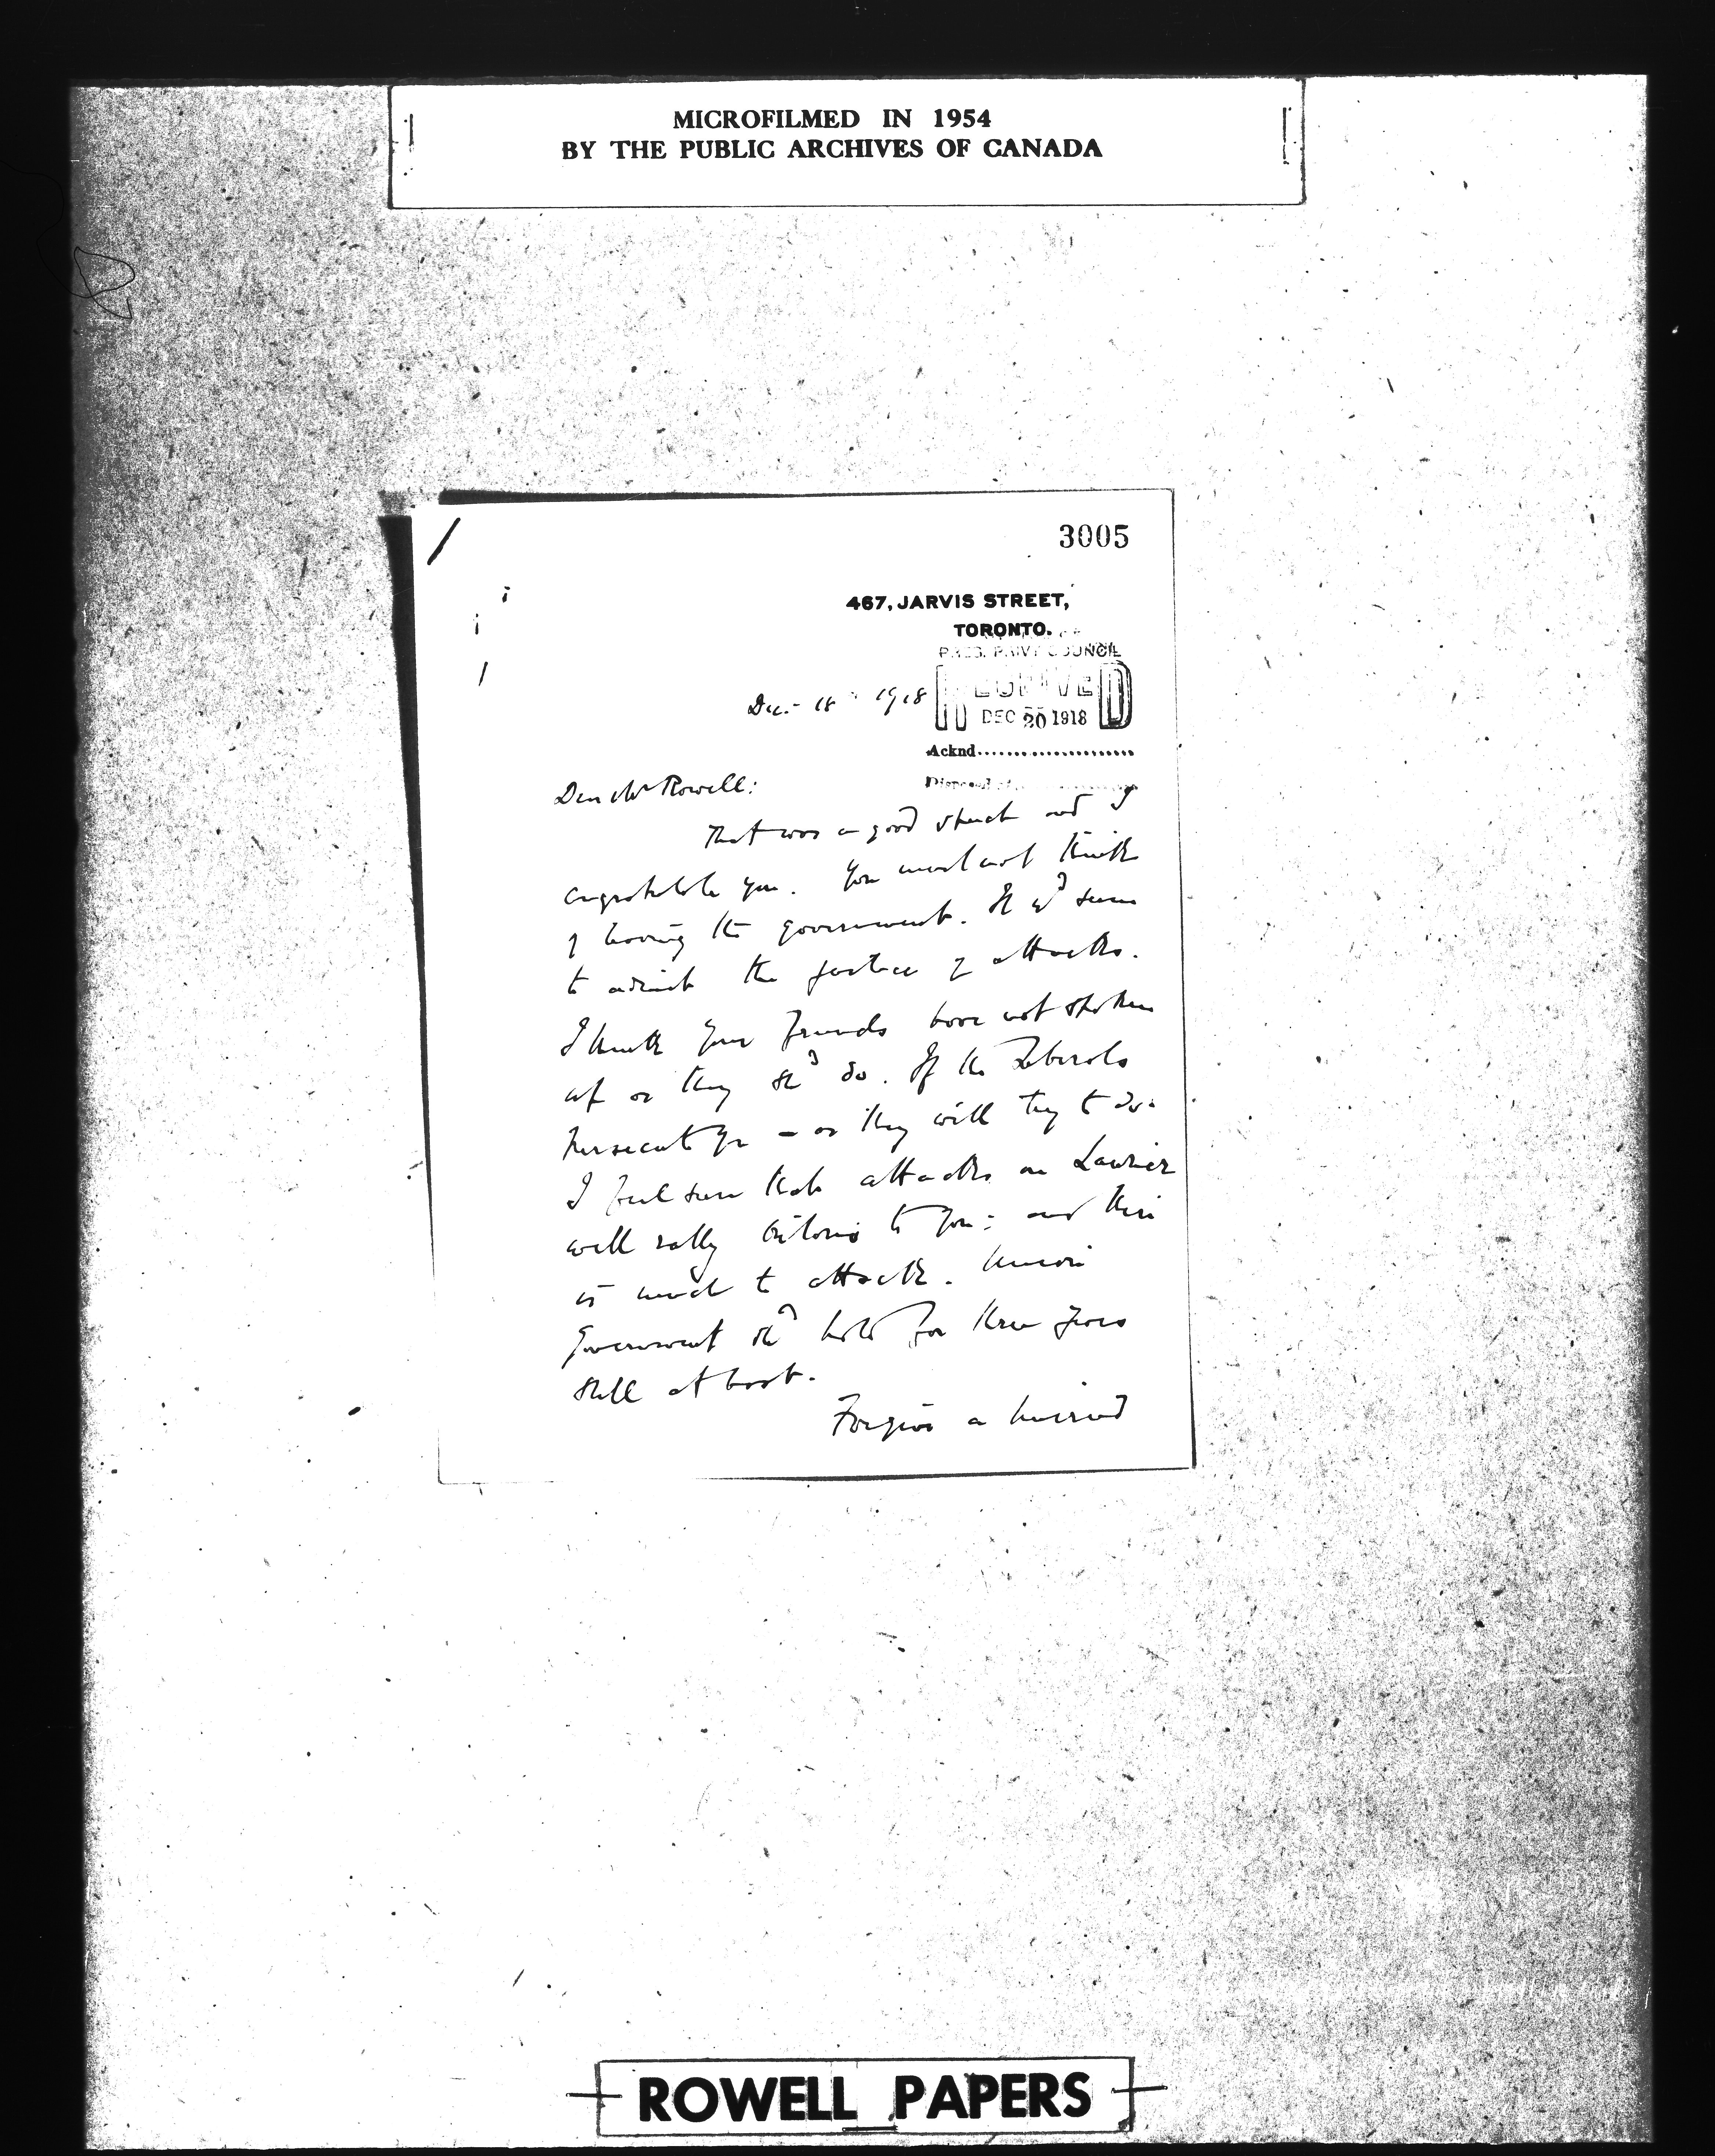 MICROFILMED IN 1954
BY THE PUBLIC ARCHIVES OF CANADA
3005
467, JARVIS STREET,
TORONTO.
PRES. PRIVY COUNCIL
RECEIVED
DEC 20 1918
Dec. 18 1918
Acknd
Dear Mr Rowell:
That was a good speech and I
congratulate you. You must not think
of leaving the government. It wd seem
to admit the justice of attacks.
I think your friends have not spoken
up as they shd do. If the Liberals
persecute you – as they will try to do –
I feel sure that attacks on Laurier
will rally Ontario to you: and there
is much to attack. Union
Government shd hold for three years
still at least.
Forgive a hurried
ROWELL PAPERS